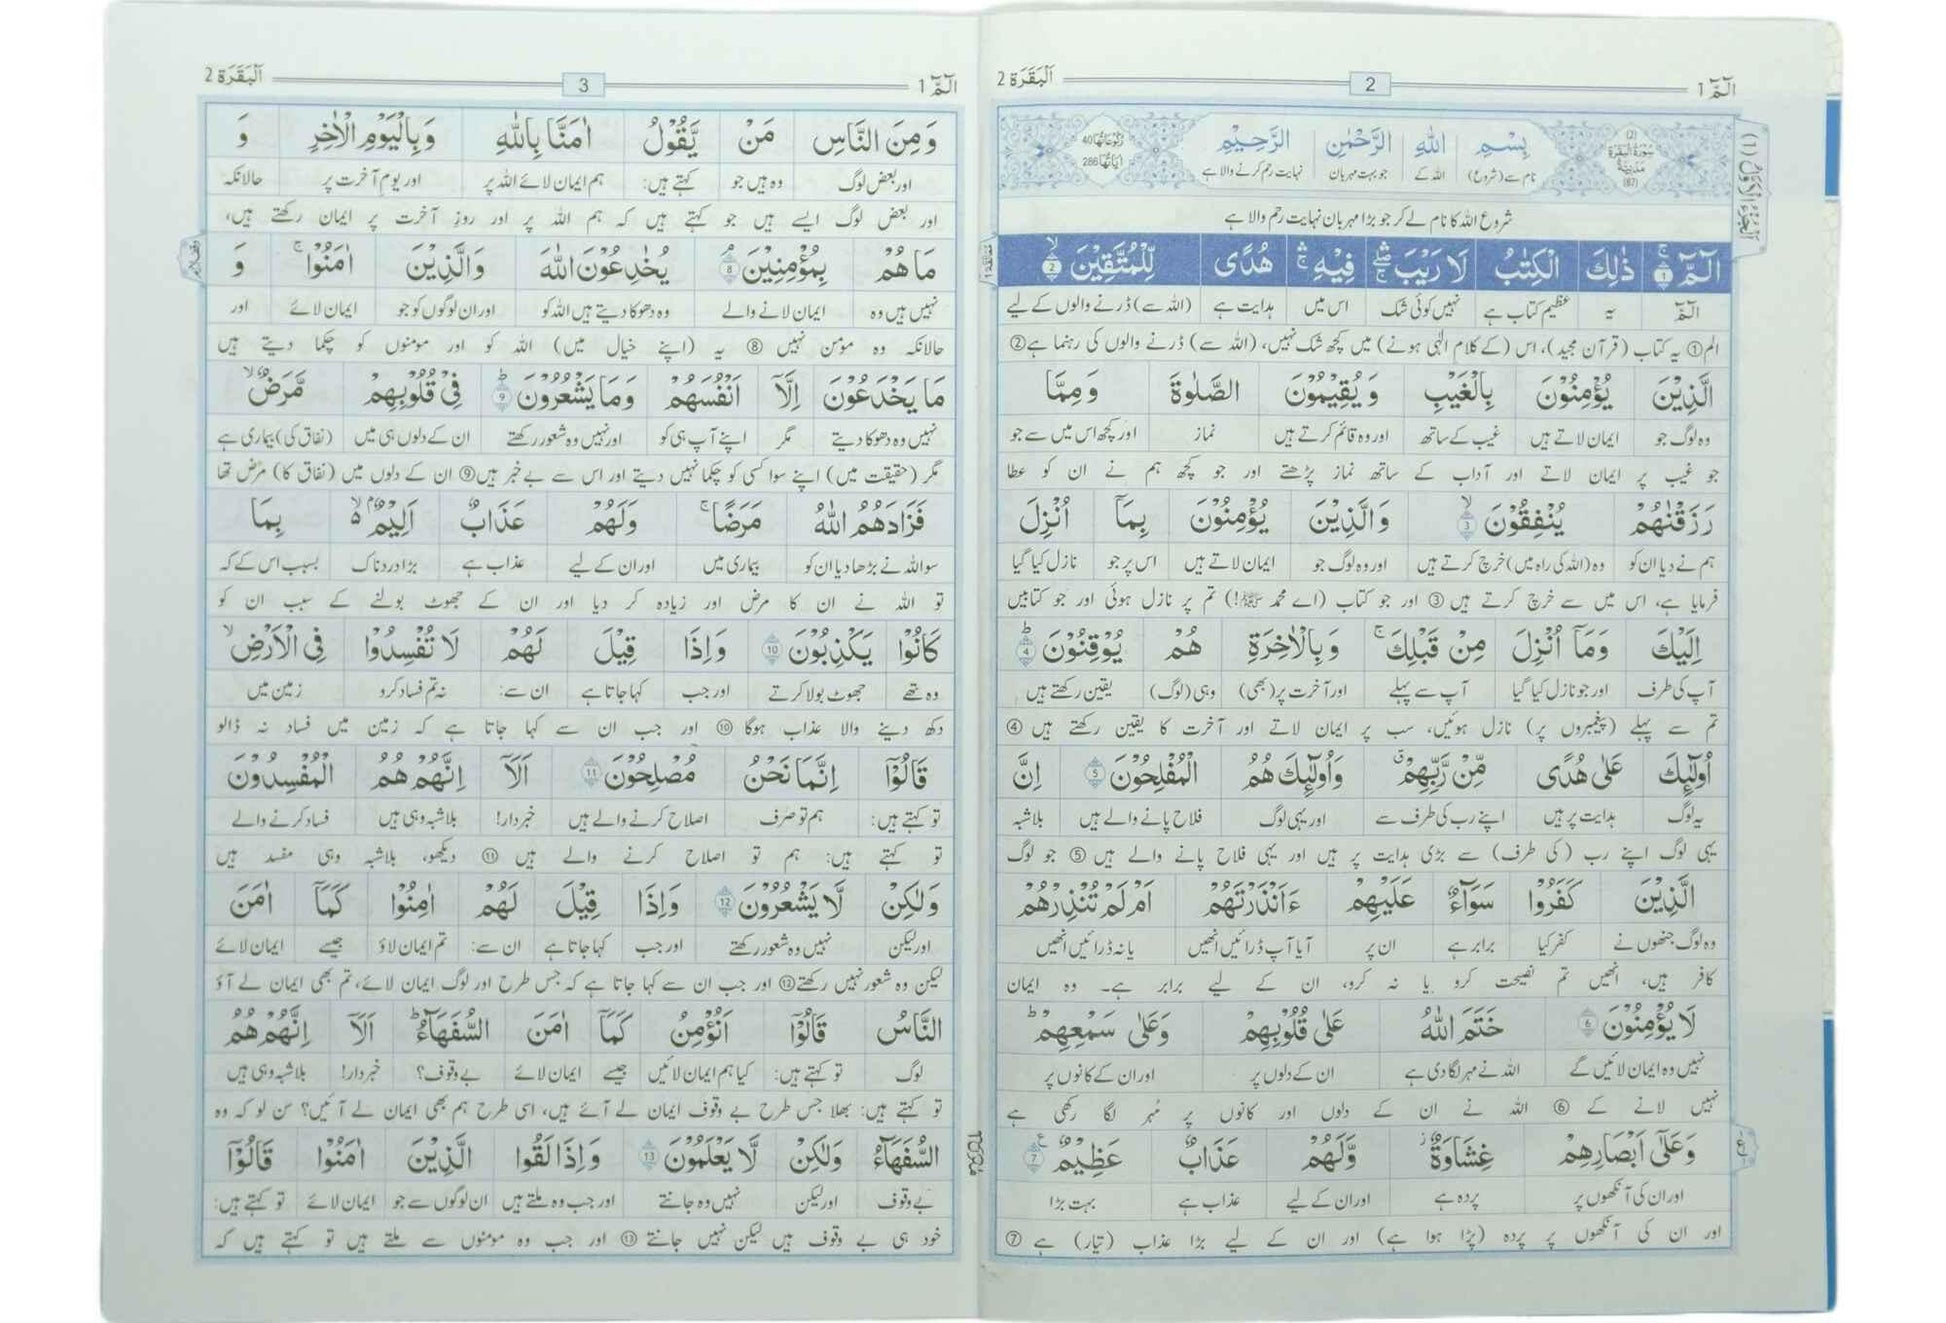 الٓمّٓ 1
2
اَلْبَقَرَة 2
اَلْجُزْءُ الْاَوَّلُ (1)
(2) سُوْرَةُ الْبَقَرَةِ مَدَنِيَّةٌ (87)
بِسْمِ اللّٰهِ الرَّحْمٰنِ الرَّحِيْمِ
رُكُوْعَاتُهَا 40 اٰيَاتُهَا 286
نام سے (شروع) اللہ کے جو بہت مہربان نہایت رحم کرنے والا ہے
شروع اللہ کا نام لے کر جو بڑا مہربان نہایت رحم والا ہے
الٓمّٓ ۚ 1 ذٰلِكَ الْكِتٰبُ لَا رَيْبَ ۛۖ فِيْهِ ۛۚ هُدًى لِّلْمُتَّقِيْنَ ۙ 2
الٓمّٓ یہ عظیم کتاب ہے نہیں کوئی شک اس میں ہدایت ہے (اللہ سے) ڈرنے والوں کے لیے
الم① یہ کتاب (قرآن مجید)، اس (کے کلام الٰہی ہونے) میں کچھ شک نہیں، (اللہ سے) ڈرنے والوں کی رہنما ہے②
الَّذِيْنَ يُؤْمِنُوْنَ بِالْغَيْبِ وَيُقِيْمُوْنَ الصَّلٰوةَ وَمِمَّا
وہ لوگ جو ایمان لاتے ہیں غیب کے ساتھ اور وہ قائم کرتے ہیں نماز اور کچھ اس میں سے جو
جو غیب پر ایمان لاتے اور آداب کے ساتھ نماز پڑھتے اور جو کچھ ہم نے ان کو عطا
رَزَقْنٰهُمْ يُنْفِقُوْنَ ۙ 3 وَالَّذِيْنَ يُؤْمِنُوْنَ بِمَاۤ اُنْزِلَ
ہم نے دیا ان کو وہ (اللہ کی راہ میں) خرچ کرتے ہیں اور وہ لوگ جو ایمان لاتے ہیں اس پر جو نازل کیا گیا
فرمایا ہے، اس میں سے خرچ کرتے ہیں ③ اور جو کتاب (اے محمد ﷺ!) تم پر نازل ہوئی اور جو کتابیں
اِلَيْكَ وَمَاۤ اُنْزِلَ مِنْ قَبْلِكَ ۚ وَبِالْاٰخِرَةِ هُمْ يُوْقِنُوْنَ ؕ 4
آپ کی طرف اور جو نازل کیا گیا آپ سے پہلے اور آخرت پر (بھی) وہی (لوگ) یقین رکھتے ہیں
تم سے پہلے (پیغمبروں پر) نازل ہوئیں، سب پر ایمان لاتے اور آخرت کا یقین رکھتے ہیں ④
اُولٰٓئِكَ عَلٰى هُدًى مِّنْ رَّبِّهِمْ ۗ وَاُولٰٓئِكَ هُمُ الْمُفْلِحُوْنَ 5 اِنَّ
یہ لوگ ہدایت پر ہیں اپنے رب کی طرف سے اور یہی لوگ فلاح پانے والے ہیں بلاشبہ
یہی لوگ اپنے رب (کی طرف) سے بڑی ہدایت پر ہیں اور یہی فلاح پانے والے ہیں ⑤ جو لوگ
الَّذِيْنَ كَفَرُوْا سَوَآءٌ عَلَيْهِمْ ءَاَنْذَرْتَهُمْ اَمْ لَمْ تُنْذِرْهُمْ
وہ لوگ جنھوں نے کفر کیا برابر ہے ان پر آیا آپ ڈرائیں انھیں یا نہ ڈرائیں انھیں
کافر ہیں، انھیں تم نصیحت کرو یا نہ کرو، ان کے لیے برابر ہے۔ وہ ایمان
لَا يُؤْمِنُوْنَ 6 خَتَمَ اللّٰهُ عَلٰى قُلُوْبِهِمْ وَعَلٰى سَمْعِهِمْ ؕ
نہیں وہ ایمان لائیں گے اللہ نے مہر لگا دی ہے ان کے دلوں پر اور ان کے کانوں پر
نہیں لانے کے ⑥ اللہ نے ان کے دلوں اور کانوں پر مُہر لگا رکھی ہے
وَعَلٰۤى اَبْصَارِهِمْ غِشَاوَةٌ ۫ وَّلَهُمْ عَذَابٌ عَظِيْمٌ 7
اور ان کی آنکھوں پر پردہ ہے اور ان کے لیے عذاب ہے بہت بڑا
اور ان کی آنکھوں پر پردہ (پڑا ہوا ہے) اور ان کے لیے بڑا عذاب (تیار) ہے ⑦
الٓمّٓ 1
3
اَلْبَقَرَة 2
وَمِنَ النَّاسِ مَنْ يَّقُوْلُ اٰمَنَّا بِاللّٰهِ وَبِالْيَوْمِ الْاٰخِرِ وَ
اور بعض لوگ وہ ہیں جو کہتے ہیں: ہم ایمان لائے اللہ پر اور یوم آخرت پر حالانکہ
اور بعض لوگ ایسے ہیں جو کہتے ہیں کہ ہم اللہ پر اور روزِ آخرت پر ایمان رکھتے ہیں،
مَا هُمْ بِمُؤْمِنِيْنَ ۘ 8 يُخٰدِعُوْنَ اللّٰهَ وَالَّذِيْنَ اٰمَنُوْا ۚ وَ
نہیں ہیں وہ ایمان لانے والے وہ دھوکا دیتے ہیں اللہ کو اور ان لوگوں کو جو ایمان لائے اور
حالانکہ وہ مومن نہیں ⑧ یہ (اپنے خیال میں) اللہ کو اور مومنوں کو چکما دیتے ہیں
مَا يَخْدَعُوْنَ اِلَّاۤ اَنْفُسَهُمْ وَمَا يَشْعُرُوْنَ ؕ 9 فِيْ قُلُوْبِهِمْ مَّرَضٌ ۙ
نہیں وہ دھوکا دیتے مگر اپنے آپ ہی کو اور نہیں وہ شعور رکھتے ان کے دلوں ہی میں (نفاق کی) بیماری ہے
مگر (حقیقت میں) اپنے سوا کسی کو چکما نہیں دیتے اور اس سے بے خبر ہیں⑨ ان کے دلوں میں (نفاق کا) مرض تھا
فَزَادَهُمُ اللّٰهُ مَرَضًا ۚ وَلَهُمْ عَذَابٌ اَلِيْمٌ ۢ ۙ بِمَا
سو اللہ نے بڑھا دیا ان کو بیماری میں اور ان کے لیے عذاب ہے بڑا دردناک بسبب اس کے کہ
تو اللہ نے ان کا مرض اور زیادہ کر دیا اور ان کے جھوٹ بولنے کے سبب ان کو
كَانُوْا يَكْذِبُوْنَ 10 وَاِذَا قِيْلَ لَهُمْ لَا تُفْسِدُوْا فِي الْاَرْضِ ۙ
وہ تھے جھوٹ بولا کرتے اور جب کہا جاتا ہے ان سے: نہ تم فساد کرو زمین میں
دکھ دینے والا عذاب ہوگا ⑩ اور جب ان سے کہا جاتا ہے کہ زمین میں فساد نہ ڈالو
قَالُوْۤا اِنَّمَا نَحْنُ مُصْلِحُوْنَ 11 اَلَاۤ اِنَّهُمْ هُمُ الْمُفْسِدُوْنَ
تو کہتے ہیں: ہم تو صرف اصلاح کرنے والے ہیں خبردار! بلاشبہ وہی ہیں فساد کرنے والے
تو کہتے ہیں: ہم تو اصلاح کرنے والے ہیں ⑪ دیکھو، بلاشبہ وہی مفسد ہیں
وَلٰكِنْ لَّا يَشْعُرُوْنَ 12 وَاِذَا قِيْلَ لَهُمْ اٰمِنُوْا كَمَاۤ اٰمَنَ
اور لیکن نہیں وہ شعور رکھتے اور جب کہا جاتا ہے ان سے: تم ایمان لاؤ جیسے ایمان لائے
لیکن وہ شعور نہیں رکھتے⑫ اور جب ان سے کہا جاتا ہے کہ جس طرح اور لوگ ایمان لائے، تم بھی ایمان لے آؤ
النَّاسُ قَالُوْۤا اَنُؤْمِنُ كَمَاۤ اٰمَنَ السُّفَهَآءُ ؕ اَلَاۤ اِنَّهُمْ هُمُ
لوگ تو کہتے ہیں: کیا ہم ایمان لائیں جیسے ایمان لائے بے وقوف؟ خبردار! بلاشبہ وہی ہیں
تو کہتے ہیں: بھلا جس طرح بے وقوف ایمان لے آئے ہیں، اسی طرح ہم بھی ایمان لے آئیں؟ سن لو کہ وہ
السُّفَهَآءُ وَلٰكِنْ لَّا يَعْلَمُوْنَ 13 وَاِذَا لَقُوا الَّذِيْنَ اٰمَنُوْا قَالُوْۤا
بے وقوف اور لیکن نہیں وہ جانتے اور جب وہ ملتے ہیں ان لوگوں سے جو ایمان لائے تو کہتے ہیں:
خود ہی بے وقوف ہیں لیکن نہیں جانتے ⑬ اور جب وہ مومنوں سے ملتے ہیں تو کہتے ہیں کہ